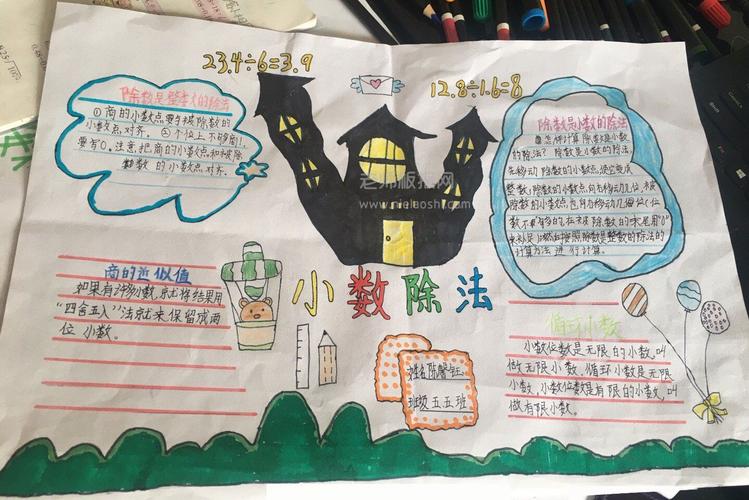 23.4÷6=3.9
12.8÷1.6=8
除数是整数的除法
①商的小数点要与被除数的
小数点对齐。②个位上不够商1,
要商0。注意把商的小数点和被除
数的小数点对齐。
除数是小数的除法
怎样计算除数是小数
的除法?除数是小数的除法,
先移动除数的小数点,使它变成
整数;除数的小数点向右移动几位,被
除数的小数点也向右移动几位(位
数不够的,在被除数的末尾用"0"
补足),然后按照除数是整数的除法的
计算方法进行计算。
老师板报网
www.nielaoshi.com
小数除法
商的近似值
如果有2许多小数,京尤将结果用
"四舍五入"法京尤来保留成两
位小数。
循环小数
小数位数是无限的小数,叫
做无限小数,循环小数是无限
小数,小数位数是有限的小数,叫
做有限小数。
姓名陈馨
班级五五班